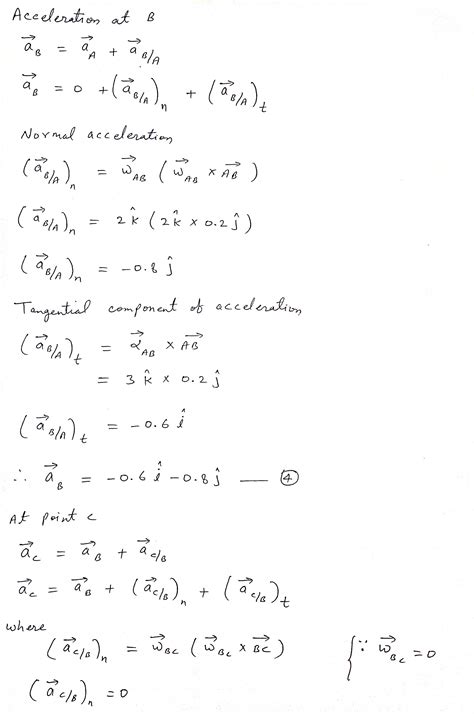 Acceleration at B
a⃗_B = a⃗_A + a⃗_B/A
a⃗_B = 0 + (a⃗_B/A)_n + (a⃗_B/A)_t
Normal acceleration
(a⃗_B/A)_n = ω⃗_AB (ω⃗_AB × AB⃗)
(a⃗_B/A)_n = 2 k̂ (2 k̂ × 0.2 ĵ)
(a⃗_B/A)_n = -0.8 ĵ
Tangential component of acceleration
(a⃗_B/A)_t = α⃗_AB × AB⃗
= 3 k̂ × 0.2 ĵ
(a⃗_B/A)_t = -0.6 î
∴ a⃗_B = -0.6 î - 0.8 ĵ — ④
At point C
a⃗_C = a⃗_B + a⃗_C/B
a⃗_C = a⃗_B + (a⃗_C/B)_n + (a⃗_C/B)_t
where
(a⃗_C/B)_n = ω⃗_BC (ω⃗_BC × BC⃗) {∵ ω⃗_BC = 0
(a⃗_C/B)_n = 0